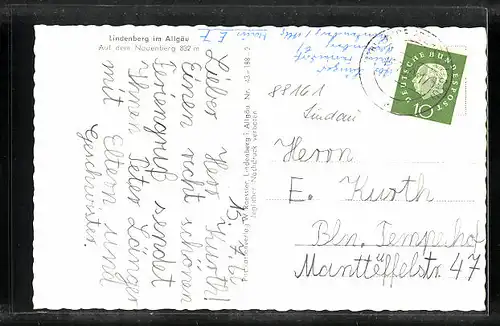 Lindenberg im Allgäu
Auf dem Nadenberg 832 m
15. 7. 61
Lieber Herr Kurth!
Einen recht schönen
Feriengruß sendet
Ihnen Peter Länger
mit Eltern und
Geschwister
Lindenberg i. Allgäu Nr.
Jeglicher Nachdruck verboten
DEUTSCHE BUNDESPOST
10
88161
Lindau
Herrn
E. Kurth
Bln. Tempelhof
Manteuffelstr. 47